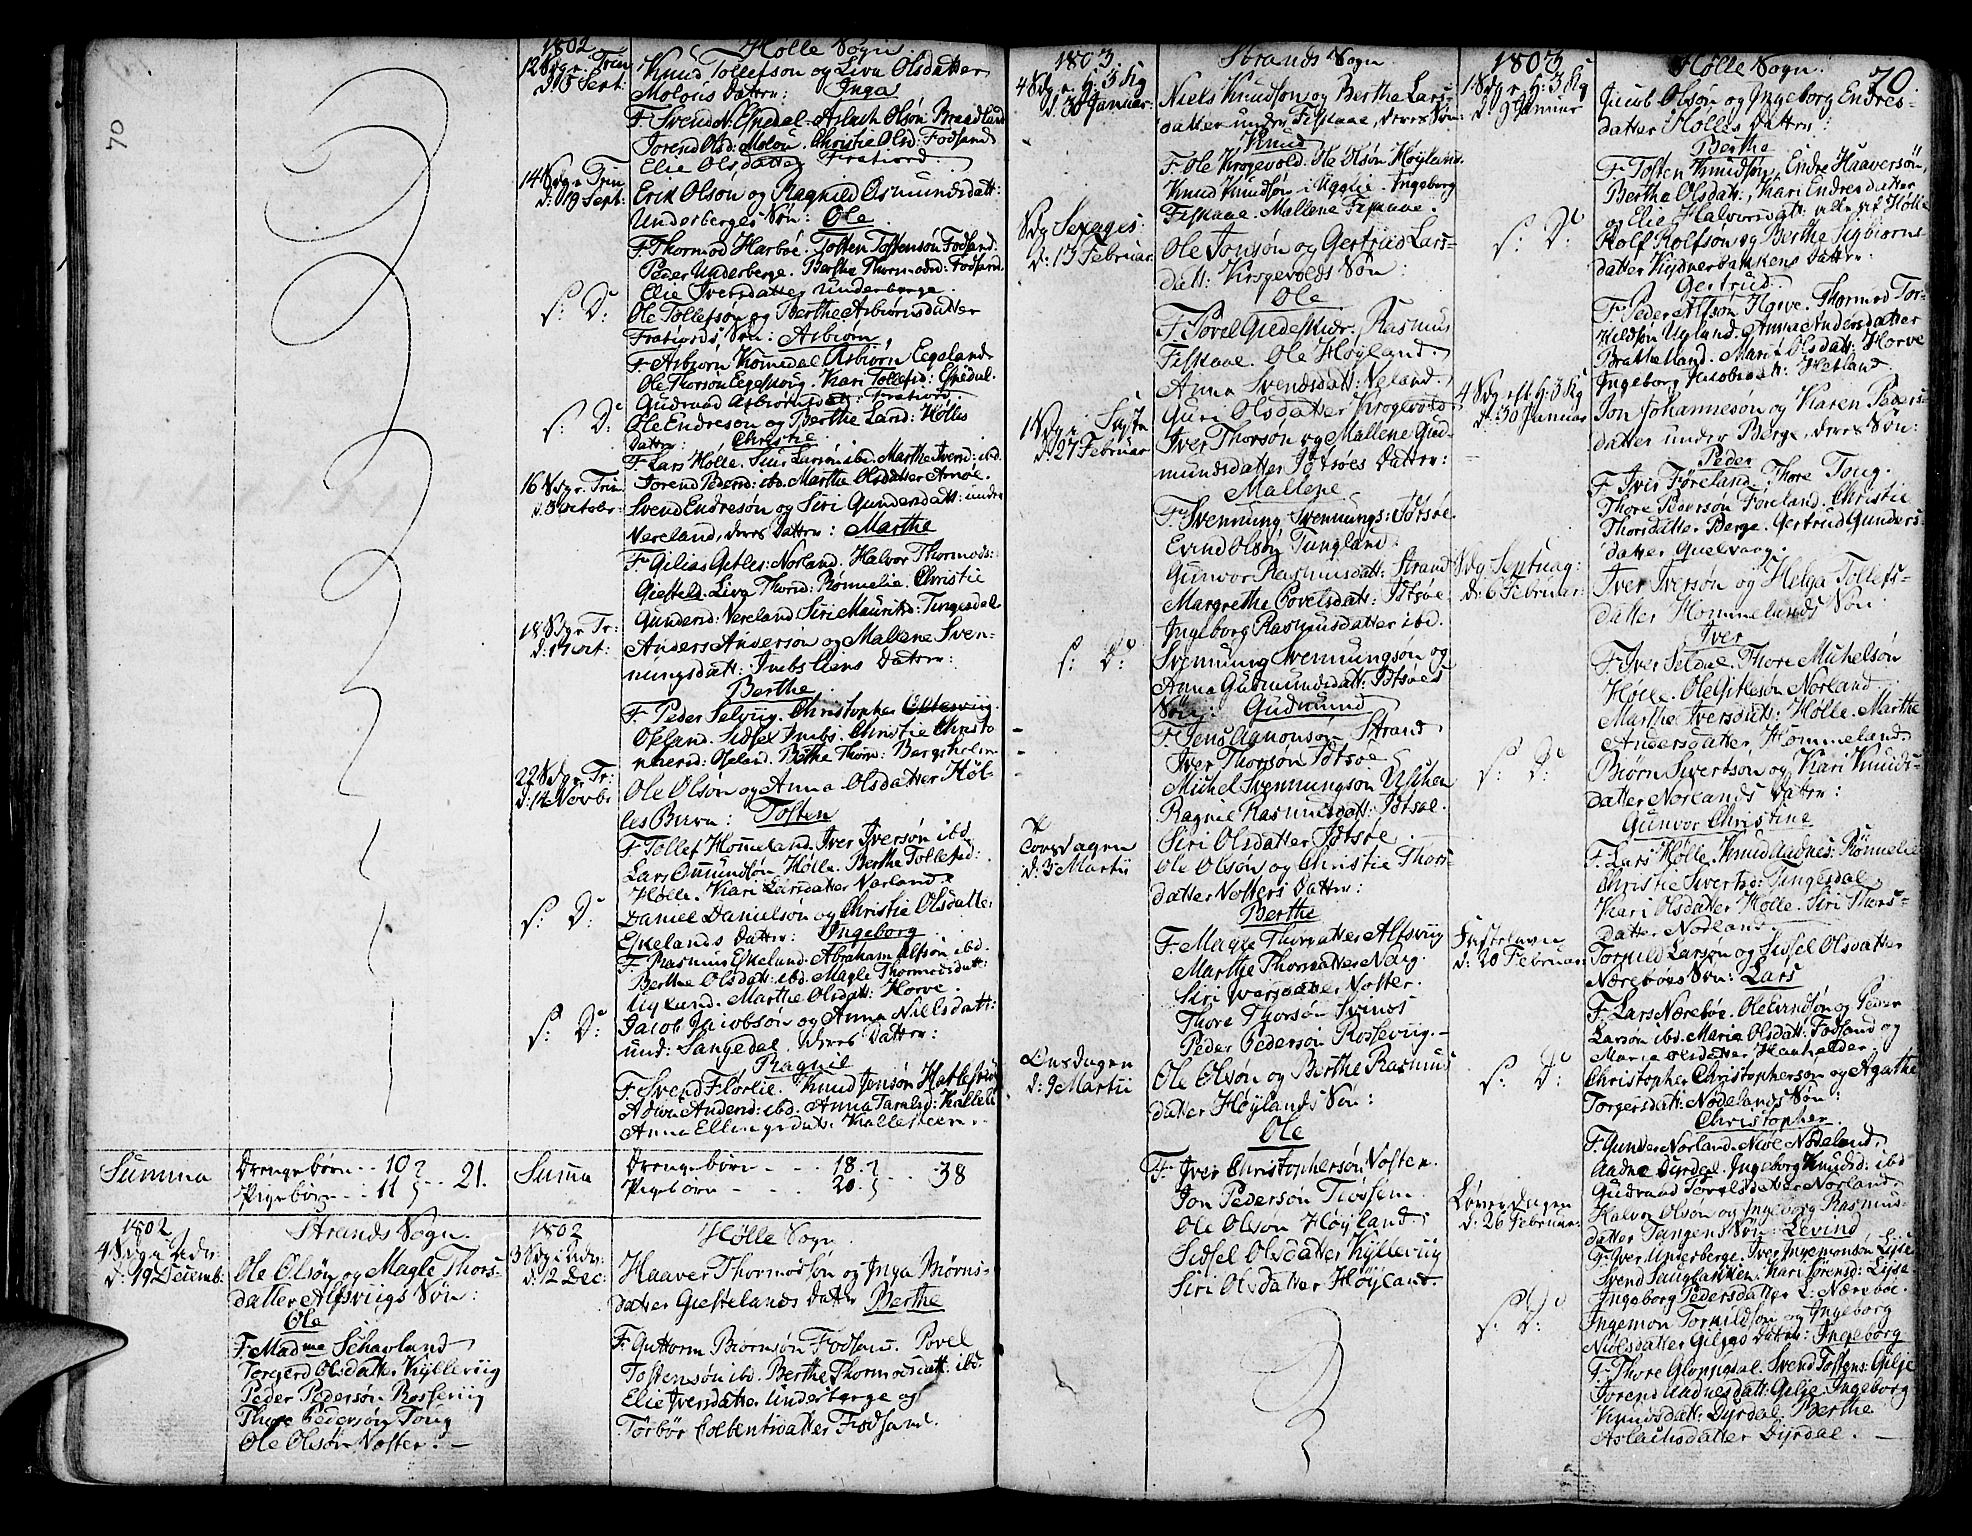 1802
Hølle Sogn
12 Sdg. e. Trin:
d. 5 Sept:
Knud Tollefsøn og Liva Olsdatter
Moløus Datter: Inga
F. Svend N. Espedal. Aslach Olsøn Brandland
Jorend Olsd: Moløu. Christie Olsd: Fodland
Elie Olsdatter Fratiord.
14 Sdg. e. Trin
d: 19 Sept:
Erik Olsøn og Ragnild Osmundsdatt:
Underberges Søn: Ole
F. Thormod Harboe. Tosten Tostensøn Fodland:
Peder Underberge. Berthe Thormodsd: Fodland.
Elie Iversdatter Underberge.
s: D:
Ole Tollefsøn og Berthe Asbiørnsdatter
Fratiords Søn: Asbiørn
F. Asbiørn Kommedal Asbiørn Eegeland
Ole Thorson Eegeskoug. Kari Tollefsd: Espedal.
Gudraad Asbiørnsdatt: Fratiord.
s: D:
Ole Endresøn og Berthe Land: Hølles
Datter: Christie
F. Lars Hølle. Siur Larsøn ibd. Marthe Iversd: ibd.
Jorend Pedersd: ibd. Marthe Olsdatter Arnøe.
16 Sdg e. Trin
d: 3 Octobr:
Svend Endresøn og Siri Gundersdatt: under
Vereland, deres Datter: Marthe
F. Gilias Gitles: Norland. Halvor Thormods:
Giesteld. Liva Thorsd: Rønnelie. Christie
Gundersd: Vereland Siri Mauritsd: Tungesdal
18 Sdg e. Tr:
d: 17 Oct:
Anders Andersøn og Mallene Sven-
ningsdatt: Imbs liens Datter:
Berthe
F. Peder Selviig. Christopher Eltesviig.
Oseland. Sidsel Imbs. Christie Christo
phersd: Oseland. Bethe Thorsd: Bergsholm
22 Sdg e. Tr:
d: 14 Novbr
Ole Olsøn og Anna Olsdatter Høl-
les Barn: Tosten
F. Tollef Hommeland. Iver Iversøn ibd
Lars Omundsøn Hølle. Berthe Tollefsd:
Hølle. Kari Larsdatter Norland.
s: D:
Daniel Danielsøn og Christie Olsdatter
Eskelands Datter: Ingeborg
F. Rasmus Eskeland. Abraham Alfsøn ibd.
Berthe Olsdatt: ibd. Magle Thormodsdatt:
Uglund. Marthe Olsdatt: Horve.
s: D:
Jacob Jacobsøn og Anna Nielsdatt:
und: Sangedal, deres Datter:
Ragnil
F. Svend Florlie. Knud Jonsøn Hatlestrøe
Anna Ellingsdatt: Kallesteen.
Summa
Drengebørn -- 10
Pigebørn -- 11 -- 21.
Summa
Drengebørn - - - 18.
Pigebørn - - - 20. - - 38
1802
Strands Sogn.
4 Sdg i Adv:
d: 19 Decemb:
Ole Olsøn og Magle Thors-
datter Alfsviigs Søn:
Ole
F. Madme Schavland
Torgerd Olsdatter Kylleviig
Peder Pedersøn Rosseviig
Thore Pedersøn Toug
Ole Olsøn Noster. -
1802
Hølle Sogn
3 Sdg i Adv:
d: 12 Dec:
Haaver Thormodsøn og Inga Biørns-
datter Giestelands Datter Berthe
F. Guttorm Biørnsøn Fodland. Povel
Tostensøn ibd. Berthe Thormodsdatt: ibd.
Elie Iversdatter Underberge og
Torbør Colbentsdatter Fodsand.
1803
Strands Sogn
4 Sdg. e. H: 3 Kg
d. 30 Januar:
Niels Knudsøn og Berthe Lars-
datter under Fiskaae, deres Søn:
Knud
F. Ole Krogevold. Ole Olsøn Høyland.
Knud Knudsøn i Ugglie. Ingeborg
Fiskaae. Mallene Fiskaae.
Sdg Sexages:
d: 13 Februar
Ole Jonsøn og Gertrud Lars-
datt: Krogevolds Søn:
Ole
F. Povel Giedeskiær. Rasmus
Fiskaae. Ole Høyland.
Anna Svendsdatt: Veland.
Guri Olsdatter Krogevold
d: 27 Februar
Iver Thorsøn og Mallene Gud-
mundsdatter Jøtsøes Datter:
Mallene
F. Svennung Svennungs: Jøtsøe
Evind Olsøn Tungland
Gunvor Rasmusdatt: Strand
Margrethe Povelsdatt: Jøtsøe
Ingeborg Rasmusdatter ibd.
s: D:
Svennung Svennungsøn og
Anna Gudmundsdatt: Jøtsøes
Søn: Gudmund
F. Jens Aanonsøn Strand
Iver Thorsøn Jøtsøe
Michel Svennungsøn
Ragnil Rasmusdatt: Jøtsøe.
Siri Olsdatter Jøtsøe.
Torsdagen
d: 3 Martii
Ole Olsøn og Christie Thors-
datter Nosters Datter:
Berthe
F. Magle Thorsdatter Alfsviig
Marthe Thorsdatter Nerg.
Siri Iversdatter Noster.
Thore Thorsøn Svines
Peder Pedersøn Rosseviig. -
Onsdagen
d: 9 Martii
Ole Olsøn og Berthe Rasmus
datter Høylands Søn:
Ole
F. Iver Christophersøn Noster.
Jon Pedersøn Tiøssem
Ole Olsøn Høyland.
Sidsel Olsdatter Kylleviig
Siri Olsdatter Høyland.
1803
Hølle Sogn.
70.
1 Sdg e. H: 3 Kg
d: 9 Januar
Jacob Olsøn og Ingeborg Endres-
datter Hølles Datter:
Berthe
F. Tosten Knudsøn, Endre Haaversøn,
Bertha Olsdatt:, Kari Endresdatter
og Elie Halvorsdatt: alle paa Hølle
s: D:
Rolf Rolfsøn og Berthe Sigbiørns-
datter Kydnesbakkens Datter:
Gertrud
F. Peder Alfsøn Horve. Thormod Tor-
kildsøn Uglund. Anna Andersdatter
Bratheland. Mari Olsdatt: Horve
Ingeborg Jacobsdatt: Hetland.
4 Sdg eft. H: 3 Kg
d: 30 Januar
Jon Johannesøn og Karen Peders-
datter under Berge, deres Søn:
Peder
F. Iver Føreland. Thore Toug.
Thore Pedersøn Føreland. Christie
Thorsdatter Berge. Gertrud Gunders-
datter Quelvaag.
Sdg Septuag:
d: 6 Februar:
Iver Iversøn og Helga Tollefs-
datter Hommelands Søn.
Iver
F. Iver Seldal. Thore Michelsøn
Hølle. Ole Gitlesøn Norland
Marthe Iversdatt: Hølle. Marthe
Andersdatter Hommeland.
s: D:
Biørn Sivertsøn og Kari Knuds-
datter Norlands Datter:
Gunvor Christine
F. Lars Hølle. Knud Aadnes: Rønnelie
Christie Sivertsd: Tungesdal.
Kari Olsdatter Hølle. Siri Thors-
datter Norland.
Fastelavn
d: 20 Februar:
Torkild Larsøn og Sidsel Olsdatter
Nærebøes Søn: Lars
F. Lars Nærebøe. Ole Evindsøn og Peder
Larsøn ibd. Maria Olsdatt: Fodsand og
Maria Olsdatter Hanhalder.
s: D:
Christopher Christophersøn og Agathe
Torgersdatt: Nødelands Søn:
Christopher
F. Gunder Norland. Niøl Nødeland.
Aadne Dyrdal. Ingeborg Knudsd: ibd
Gudraad Torgelsdatter Norland.
Løverdagen
d: 26 Februar:
Halvor Olsøn og Ingeborg Rasmus-
datter Tangens Søn: Levind
F. Iver Underberge. Iver Ingemonsøn Lyse
Svend Sangbakken. Kari Sørensd: Lyse
Ingeborg Pedersdatter L: Nærebøe.
s: D:
Ingemon Torkildsøn og Ingeborg
Niølsdatter Giljes Datter: Ingeborg
F. Thore Gloppedal. Svend Tostens: Gilje
Jorend Aadnesdatt: Gilje. Ingeborg
Knudsdatt: Dyrdal. Berthe
Aslachsdatter Dyrdal. -
70